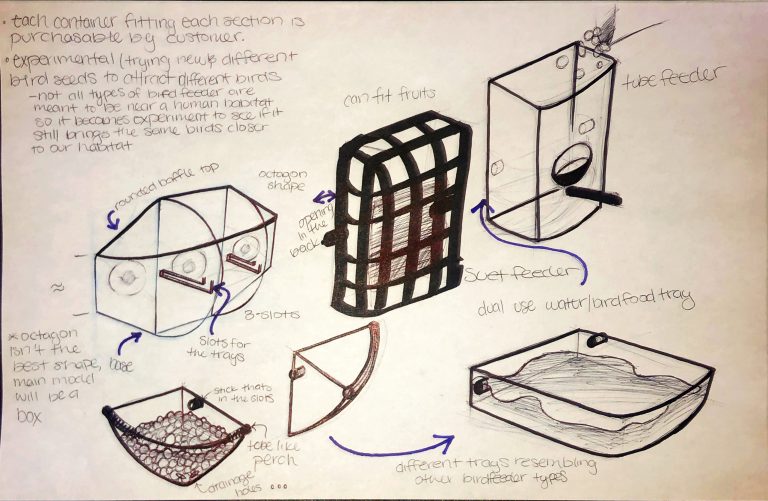 • Each container fitting each section is
purchasable by customer.
• experimental (trying new & different
bird seeds to attract different birds
- not all types of bird feeder are
meant to be near a human habitat
so it becomes experiment to see if it
still brings the same birds closer
to our habitat
can fit fruits
tube feeder
rounded baffle top
octagon
shape
opening
in the
back
suet feeder
dual use water/bird food tray
3-slots
slots for
the trays
base
* octagon
isn't the
best shape,
main model
will be a
box
stick thats
in the slots
tube like
perch
drainage
holes ...
different trays resembling
other birdfeeder types